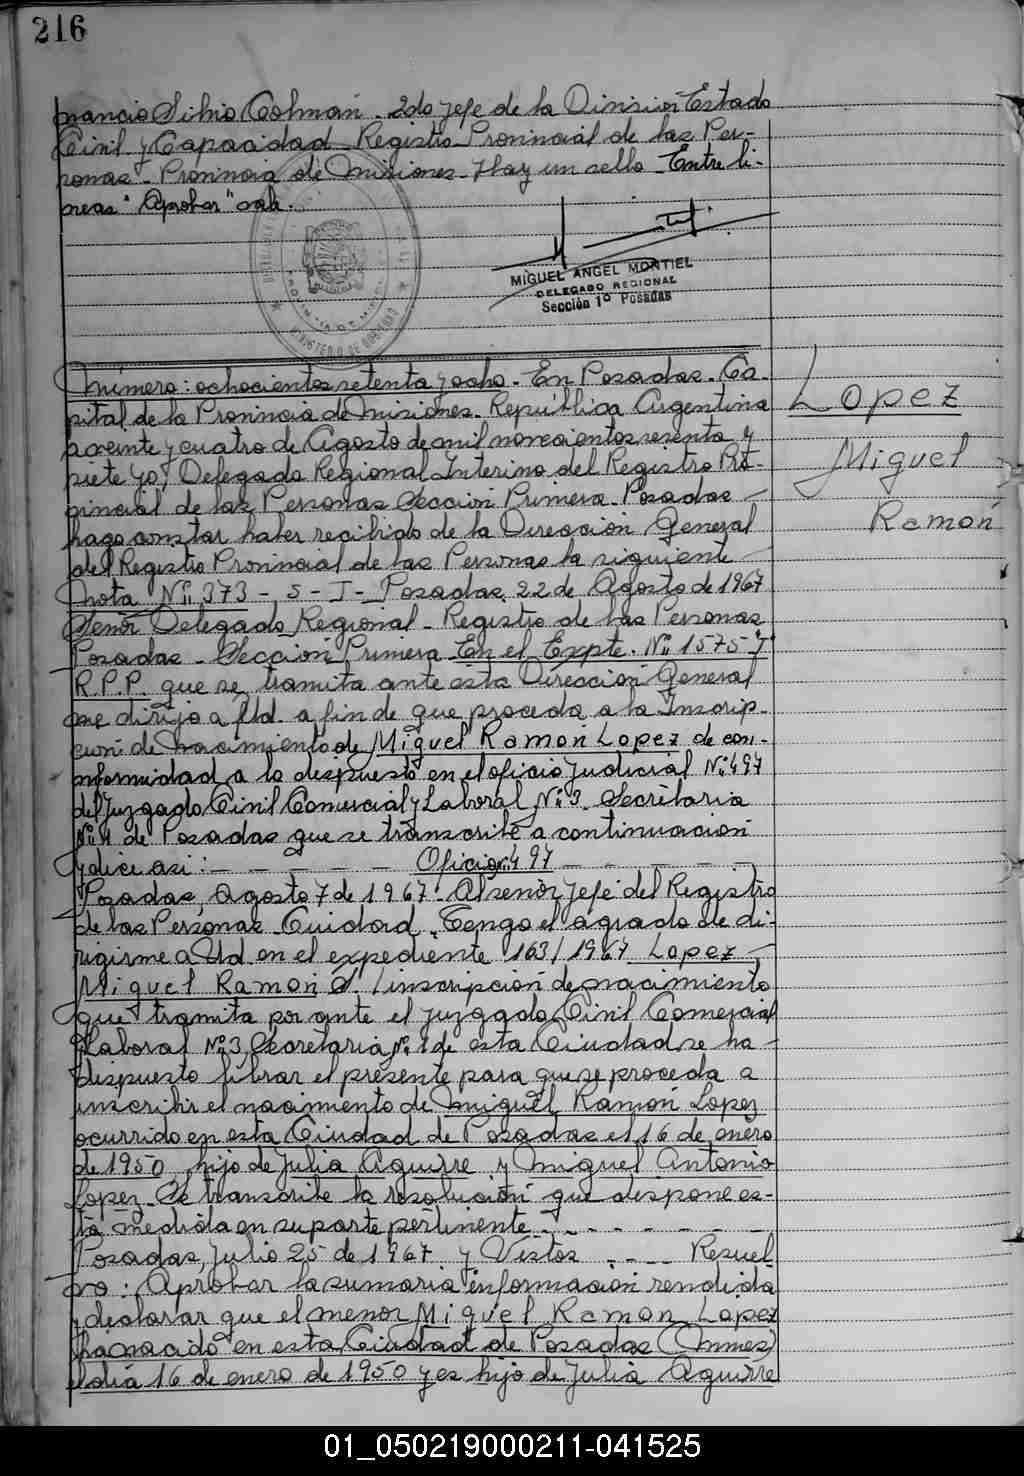 216
Silvio Colman. 2do Jefe de la Division Estado
Civil y Capacidad. Registro Provincial de las Per-
sonas. Provincia de Misiones. Hay un sello. Entre li-
neas "Aprobar" vale.
MIGUEL ANGEL MONTIEL
DELEGADO REGIONAL
Sección 1º Posadas
Número: ochocientos setenta y ocho. En Posadas. Ca-
pital de la Provincia de Misiones. República Argentina
a veinte y cuatro de Agosto de mil novecientos sesenta y
siete yo, Delegado Regional Interino del Registro Pro-
vincial de las Personas Sección Primera. Posadas
hago constar haber recibido de la Dirección General
del Registro Provincial de las Personas la siguiente
nota Nº 373 - S - J - Posadas, 22 de Agosto de 1967
Señor Delegado Regional - Registro de las Personas
Posadas - Sección Primera En el Expte. Nº 1575 "J"
R.P.P. que se tramita ante esta Dirección General
me dirijo a Ud. a fin de que proceda a la Inscrip-
ción de nacimiento de Miguel Ramón Lopez de con-
formidad a lo dispuesto en el oficio Judicial Nº 497
del Juzgado Civil Comercial y Laboral Nº 3. Secretaria
Nº 1 de Posadas que se transcribe a continuación
y dice asi: - - - - - Oficio Nº 497 - - - - -
Posadas, Agosto 7 de 1967. Al señor Jefe del Registro
de las Personas Ciudad. Tengo el agrado de di-
rigirme a Ud. en el expediente 163/1967 Lopez
Miguel Ramon S/ inscripción de nacimiento
que tramita por ante el Juzgado Civil Comercial
Laboral Nº 3, Secretaria Nº 1 de esta Ciudad, se ha
dispuesto librar el presente para que se proceda a
inscribir el nacimiento de Miguel Ramón Lopez
ocurrido en esta Ciudad de Posadas el 16 de enero
de 1950 hijo de Julia Aguirre y Miguel Antonio
Lopez. Se transcribe la resolución que dispone es-
ta medida en su parte pertinente. - - - - - - -
Posadas, Julio 25 de 1967 y Vistos . - - - Resuel
vo: Aprobar la sumaria información rendida
y declarar que el menor Miguel Ramon Lopez
ha nacido en esta Ciudad de Posadas (Mnes)
el día 16 de enero de 1950 y es hijo de Julia Aguirre
Lopez
Miguel
Ramón
01_050219000211-041525